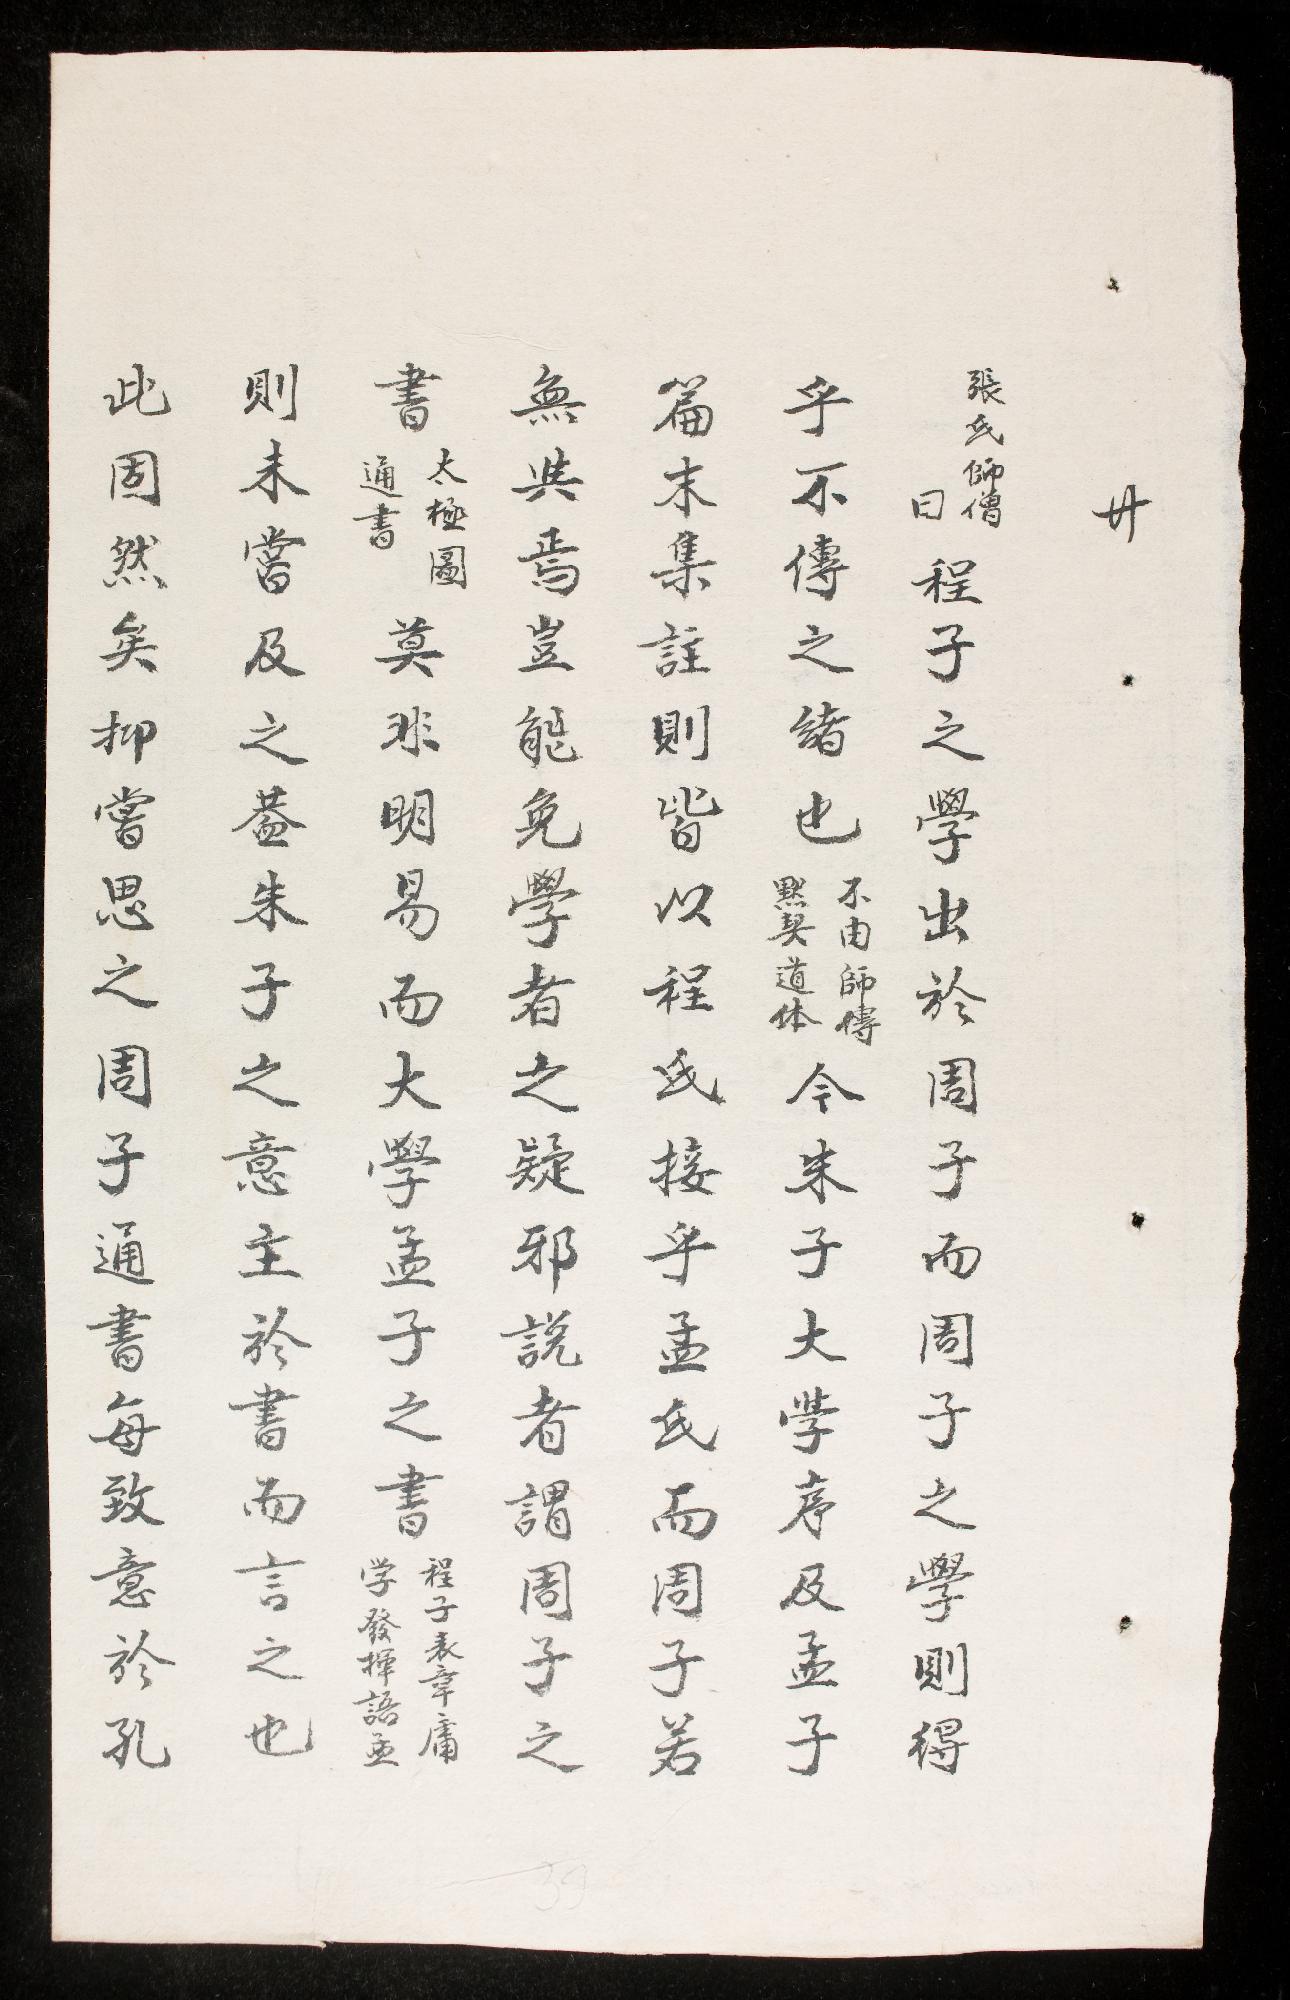 廾
張氏師僧
曰程子之學出於周子而周子之學則得
乎不傳之緒也不由師傳默契道体今朱子大学序及孟子
篇末集註則皆以程氏接乎孟氏而周子若
無與焉豈能免學者之疑邪説者謂周子之
書太極圖通書莫非明易而大學孟子之書程子表章庸学發揮語孟
則未嘗及之蓋朱子之意主於書而言之也
此固然矣抑嘗思之周子通書每致意於孔
39